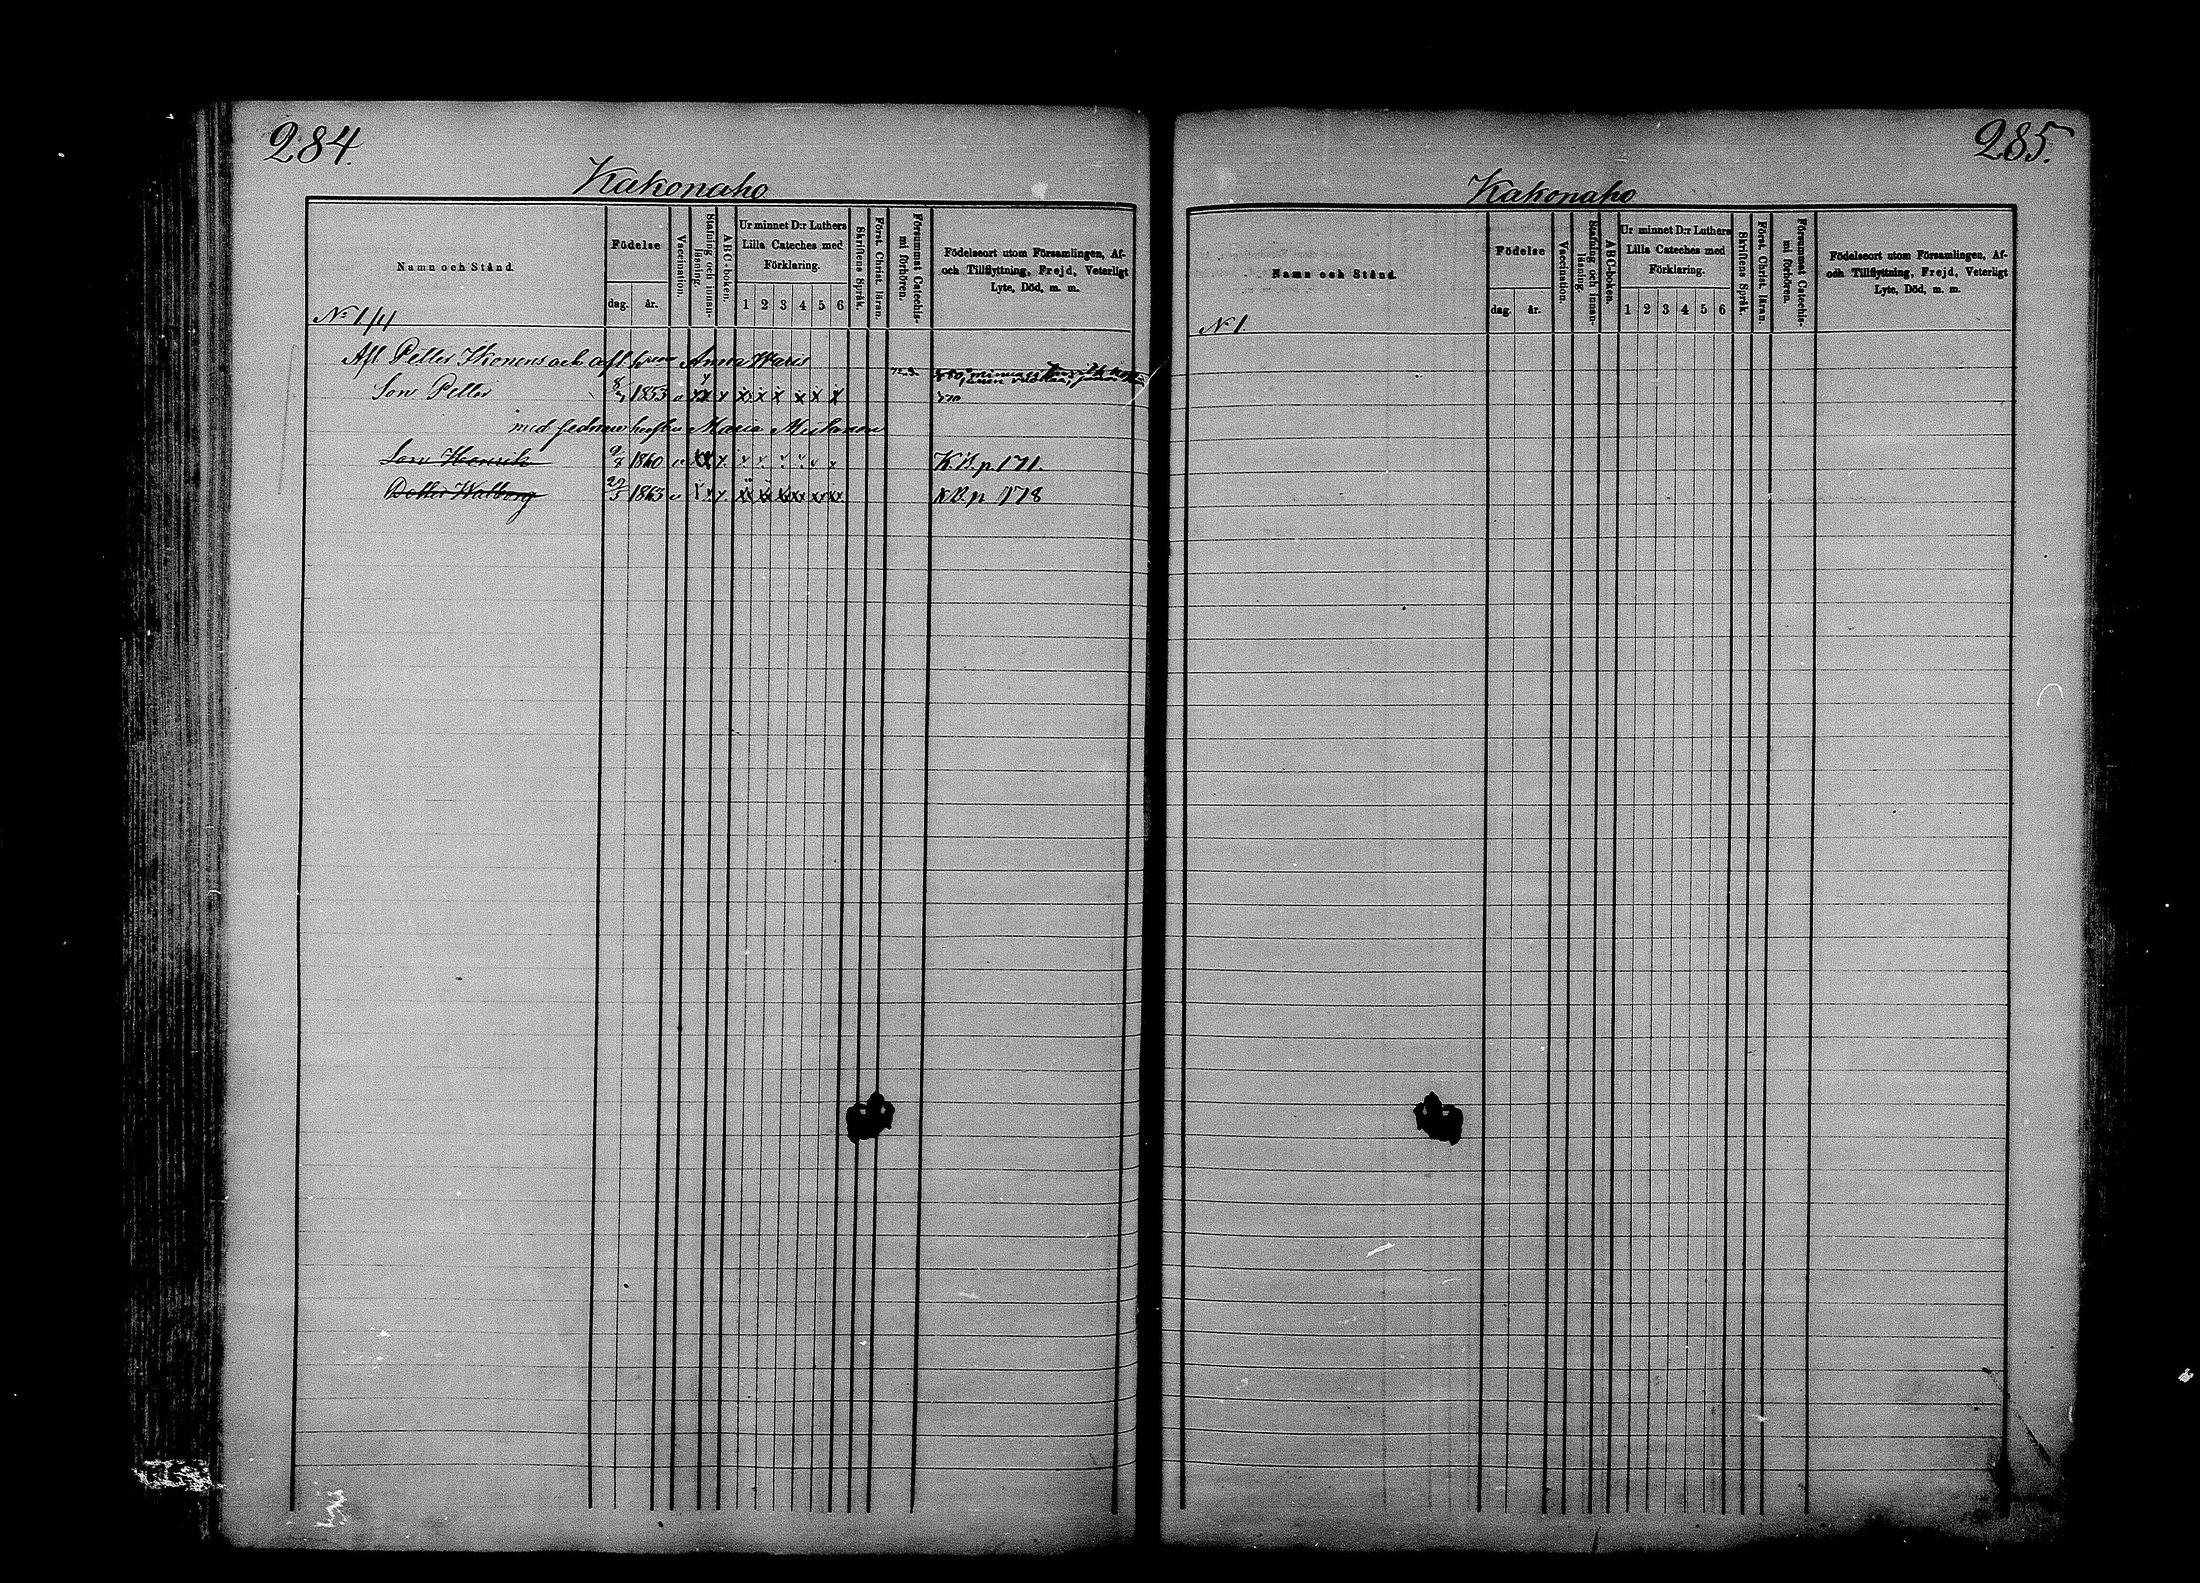 284.
Kakonaho
Namn och Stånd.
Födelse
dag. år.
Vaccination.
Stafning och innan-
läsning.
ABC-boken.
Ur minnet D:r Luthers
Lilla Cateches med
Förklaring.
1 2 3 4 5 6
Skriftens Språk.
Först. Christ. läran.
Försummat Catechis-
mi förhören.
Födelseort utom Församlingen, Af-
och Tillflyttning, Frejd, Veterligt
Lyte, Död, m. m.
No 1
Afl. Petter Ikonens och afl. Anna Waris
Son Petter 8/7 1853 v x x x x x x x
med sednare hustru Maria
Son Henrik 9/8 1860 v K.B.p. 171.
Dotter Walborg 29/5 1863 v K.B.p 178
285.
Kakonaho
Namn och Stånd.
Födelse
dag. år.
Vaccination.
Stafning och innan-
läsning.
ABC-boken.
Ur minnet D:r Luthers
Lilla Cateches med
Förklaring.
1 2 3 4 5 6
Skriftens Språk.
Först. Christ. läran.
Försummat Catechis-
mi förhören.
Födelseort utom Församlingen, Af-
och Tillflyttning, Frejd, Veterligt
Lyte, Död, m. m.
No 1.